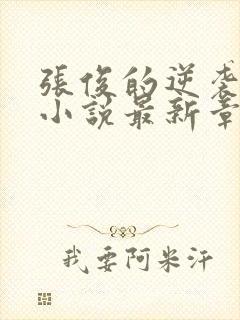 張俊的逆袭
小說最新章
我要阿米汗